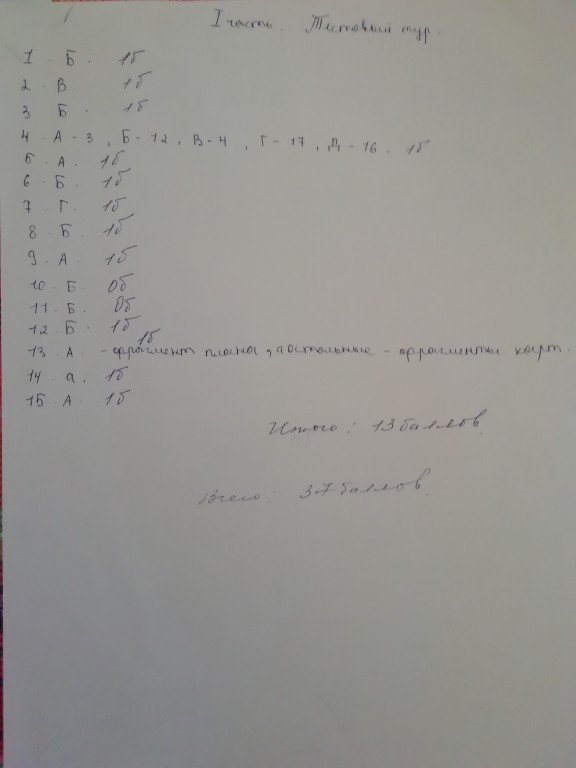 I часть. Тестовый тур.
1. Б. 1б
2. В 1б
3 Б. 1б
4. А-3, Б-12, В-4, Г-17, Д-16. 1б
5. А. 1б
6. Б. 1б
7. Г. 1б
8. Б. 1б
9. А. 1б
10. Б. 0б
11. Б. 0б
12. Б. 1б
13. А. - фрагмент плана, а остальные - фрагменты карт. 1б
14. а. 1б
15. А. 1б
Итого: 13 баллов
Всего: 37 баллов.